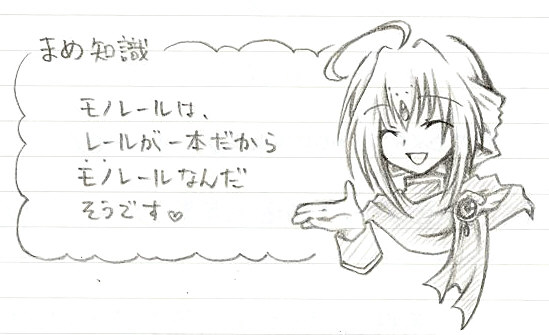 まめ知識
モノレールは、
レールが一本だから
モノレールなんだ
そうです♡